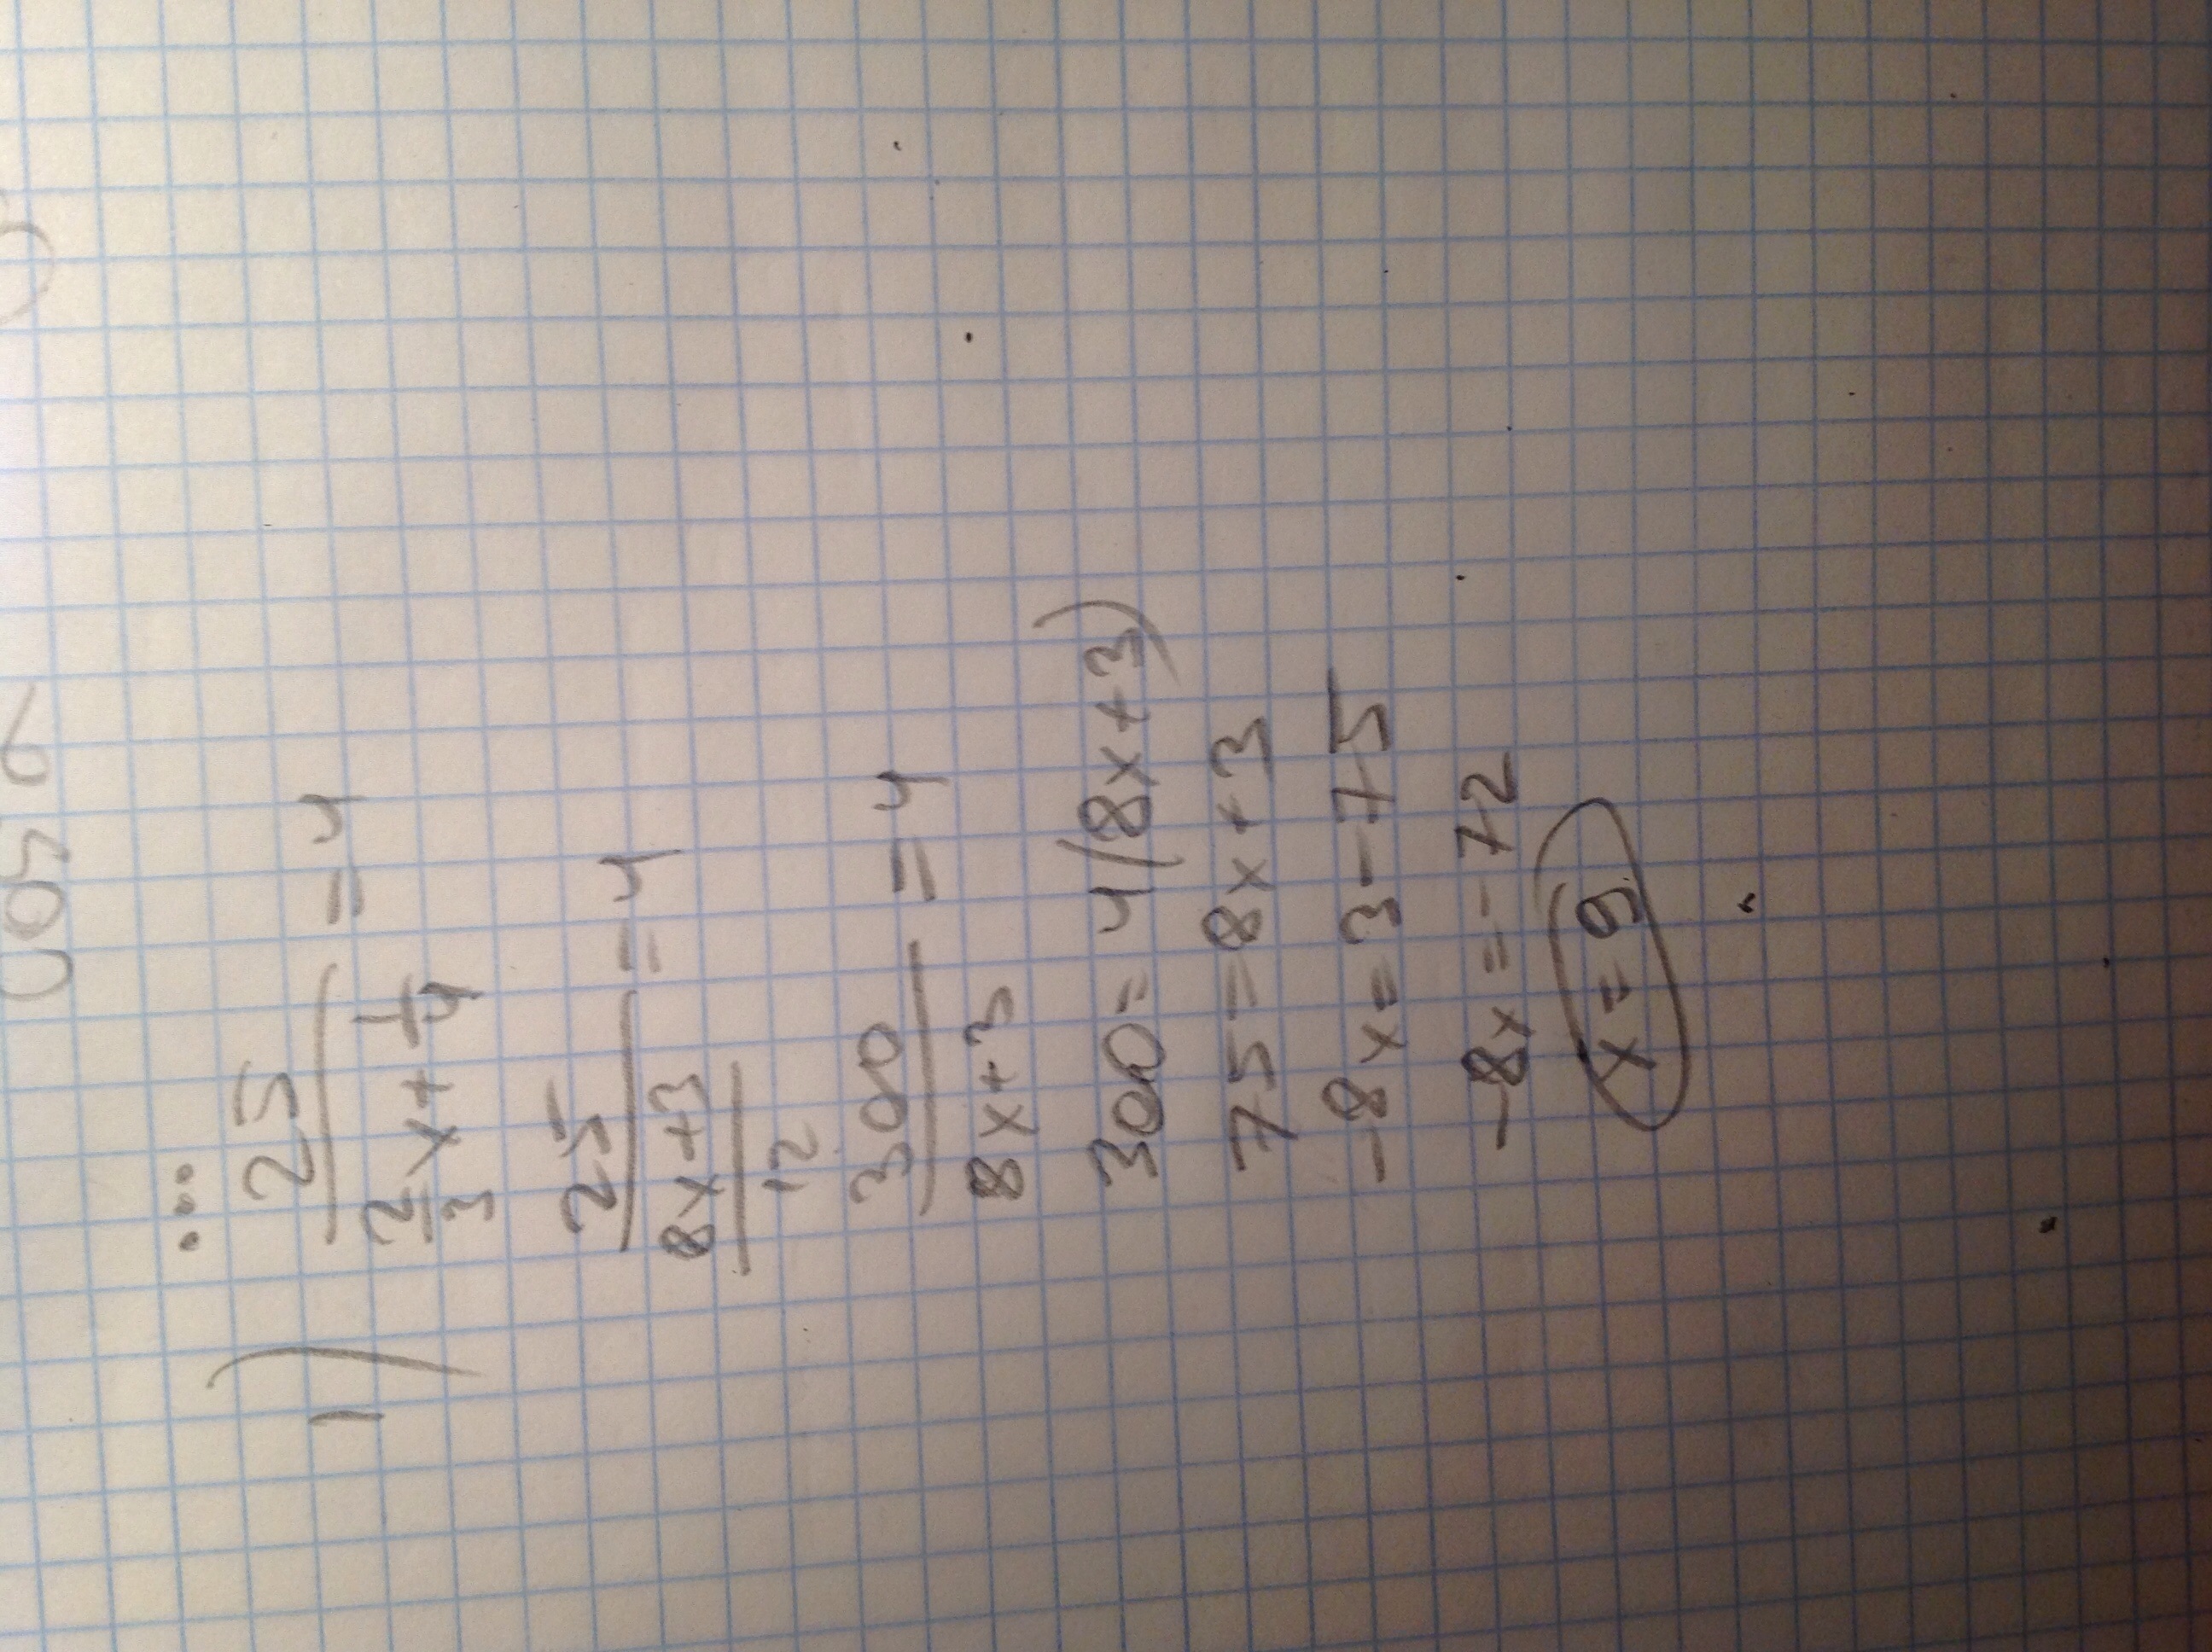 1)
25
2/3 x + 1/4 = 4
25
8x+3 = 4
12
300
8x+3 = 4
300 = 4(8x+3)
75 = 8x+3
-8x = 3-75
-8x = -72
x = 9